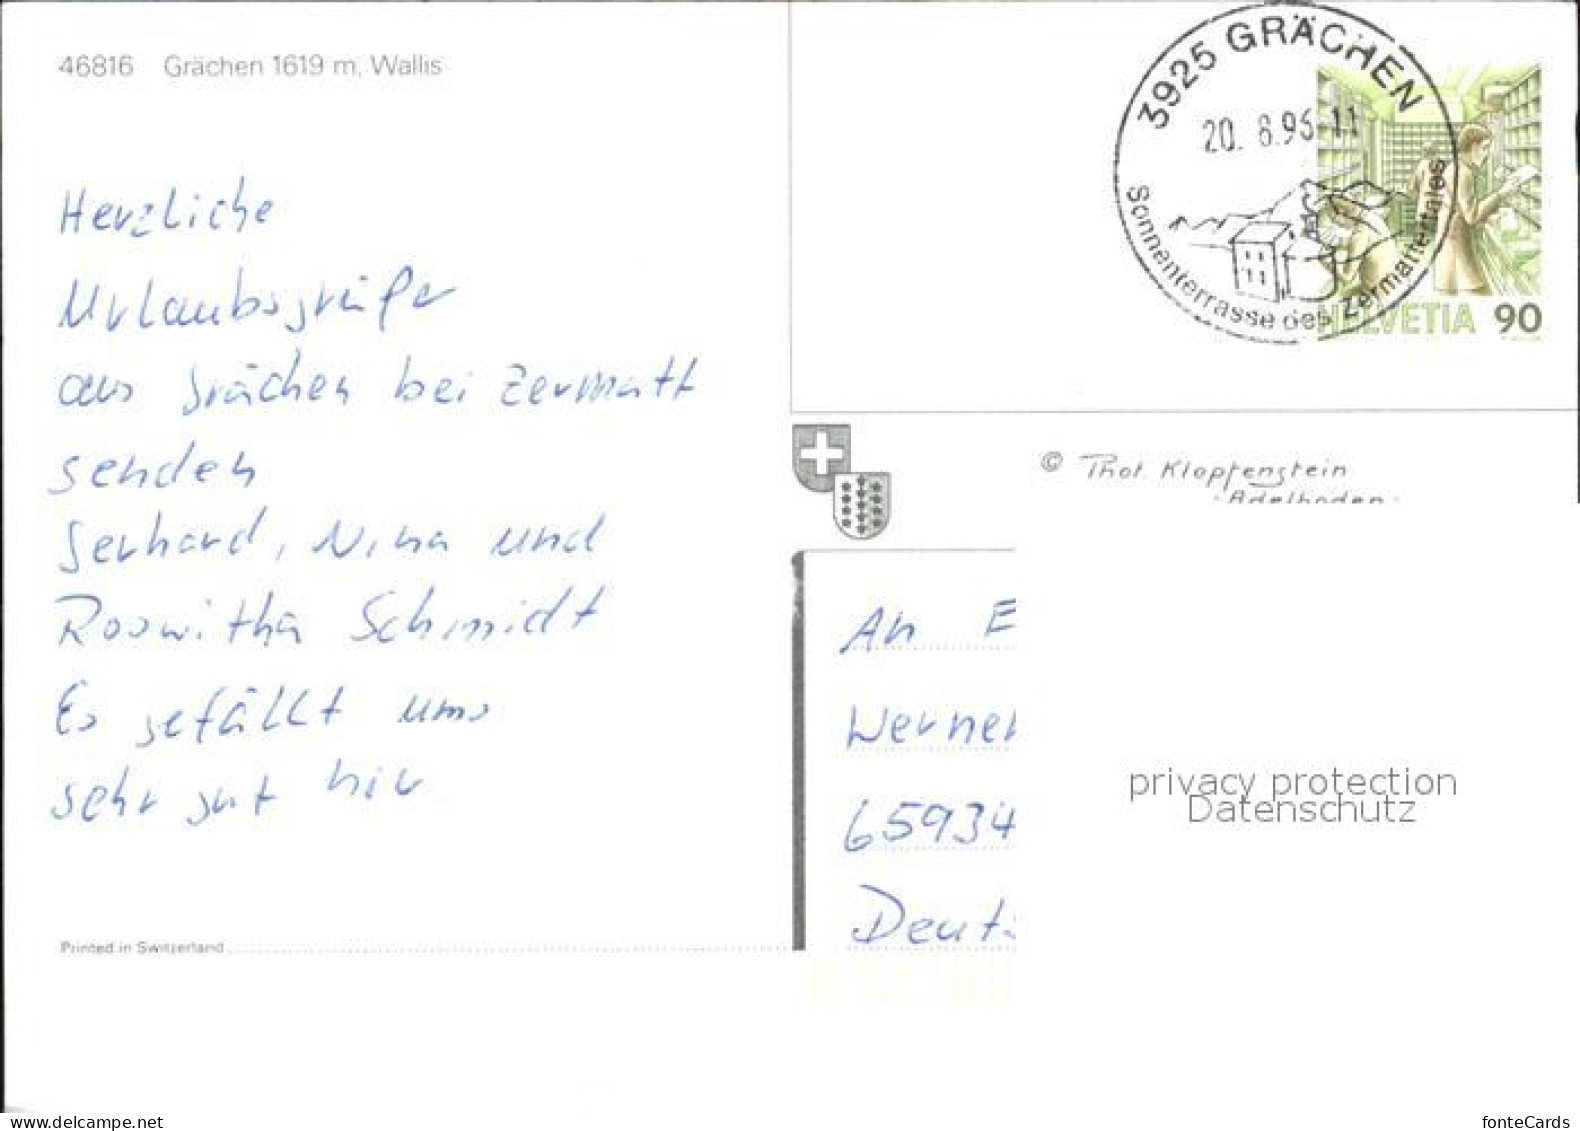 46816 Grächen 1619 m, Wallis
Herzliche
Urlaubsgrüße
aus Grächen bei Zermatt
senden
Gerhard, Nina und
Roswitha Schmidt
Es gefällt uns
sehr gut hier
Printed in Switzerland
3925 GRÄCHEN
20. 8.95 11
Sonnenterrasse des Zermattertales
HELVETIA 90
© Phot. Klopfenstein
- Adelboden -
An E
Werner
65934
Deut
privacy protection
Datenschutz
www.delcampe.net
fonteCards